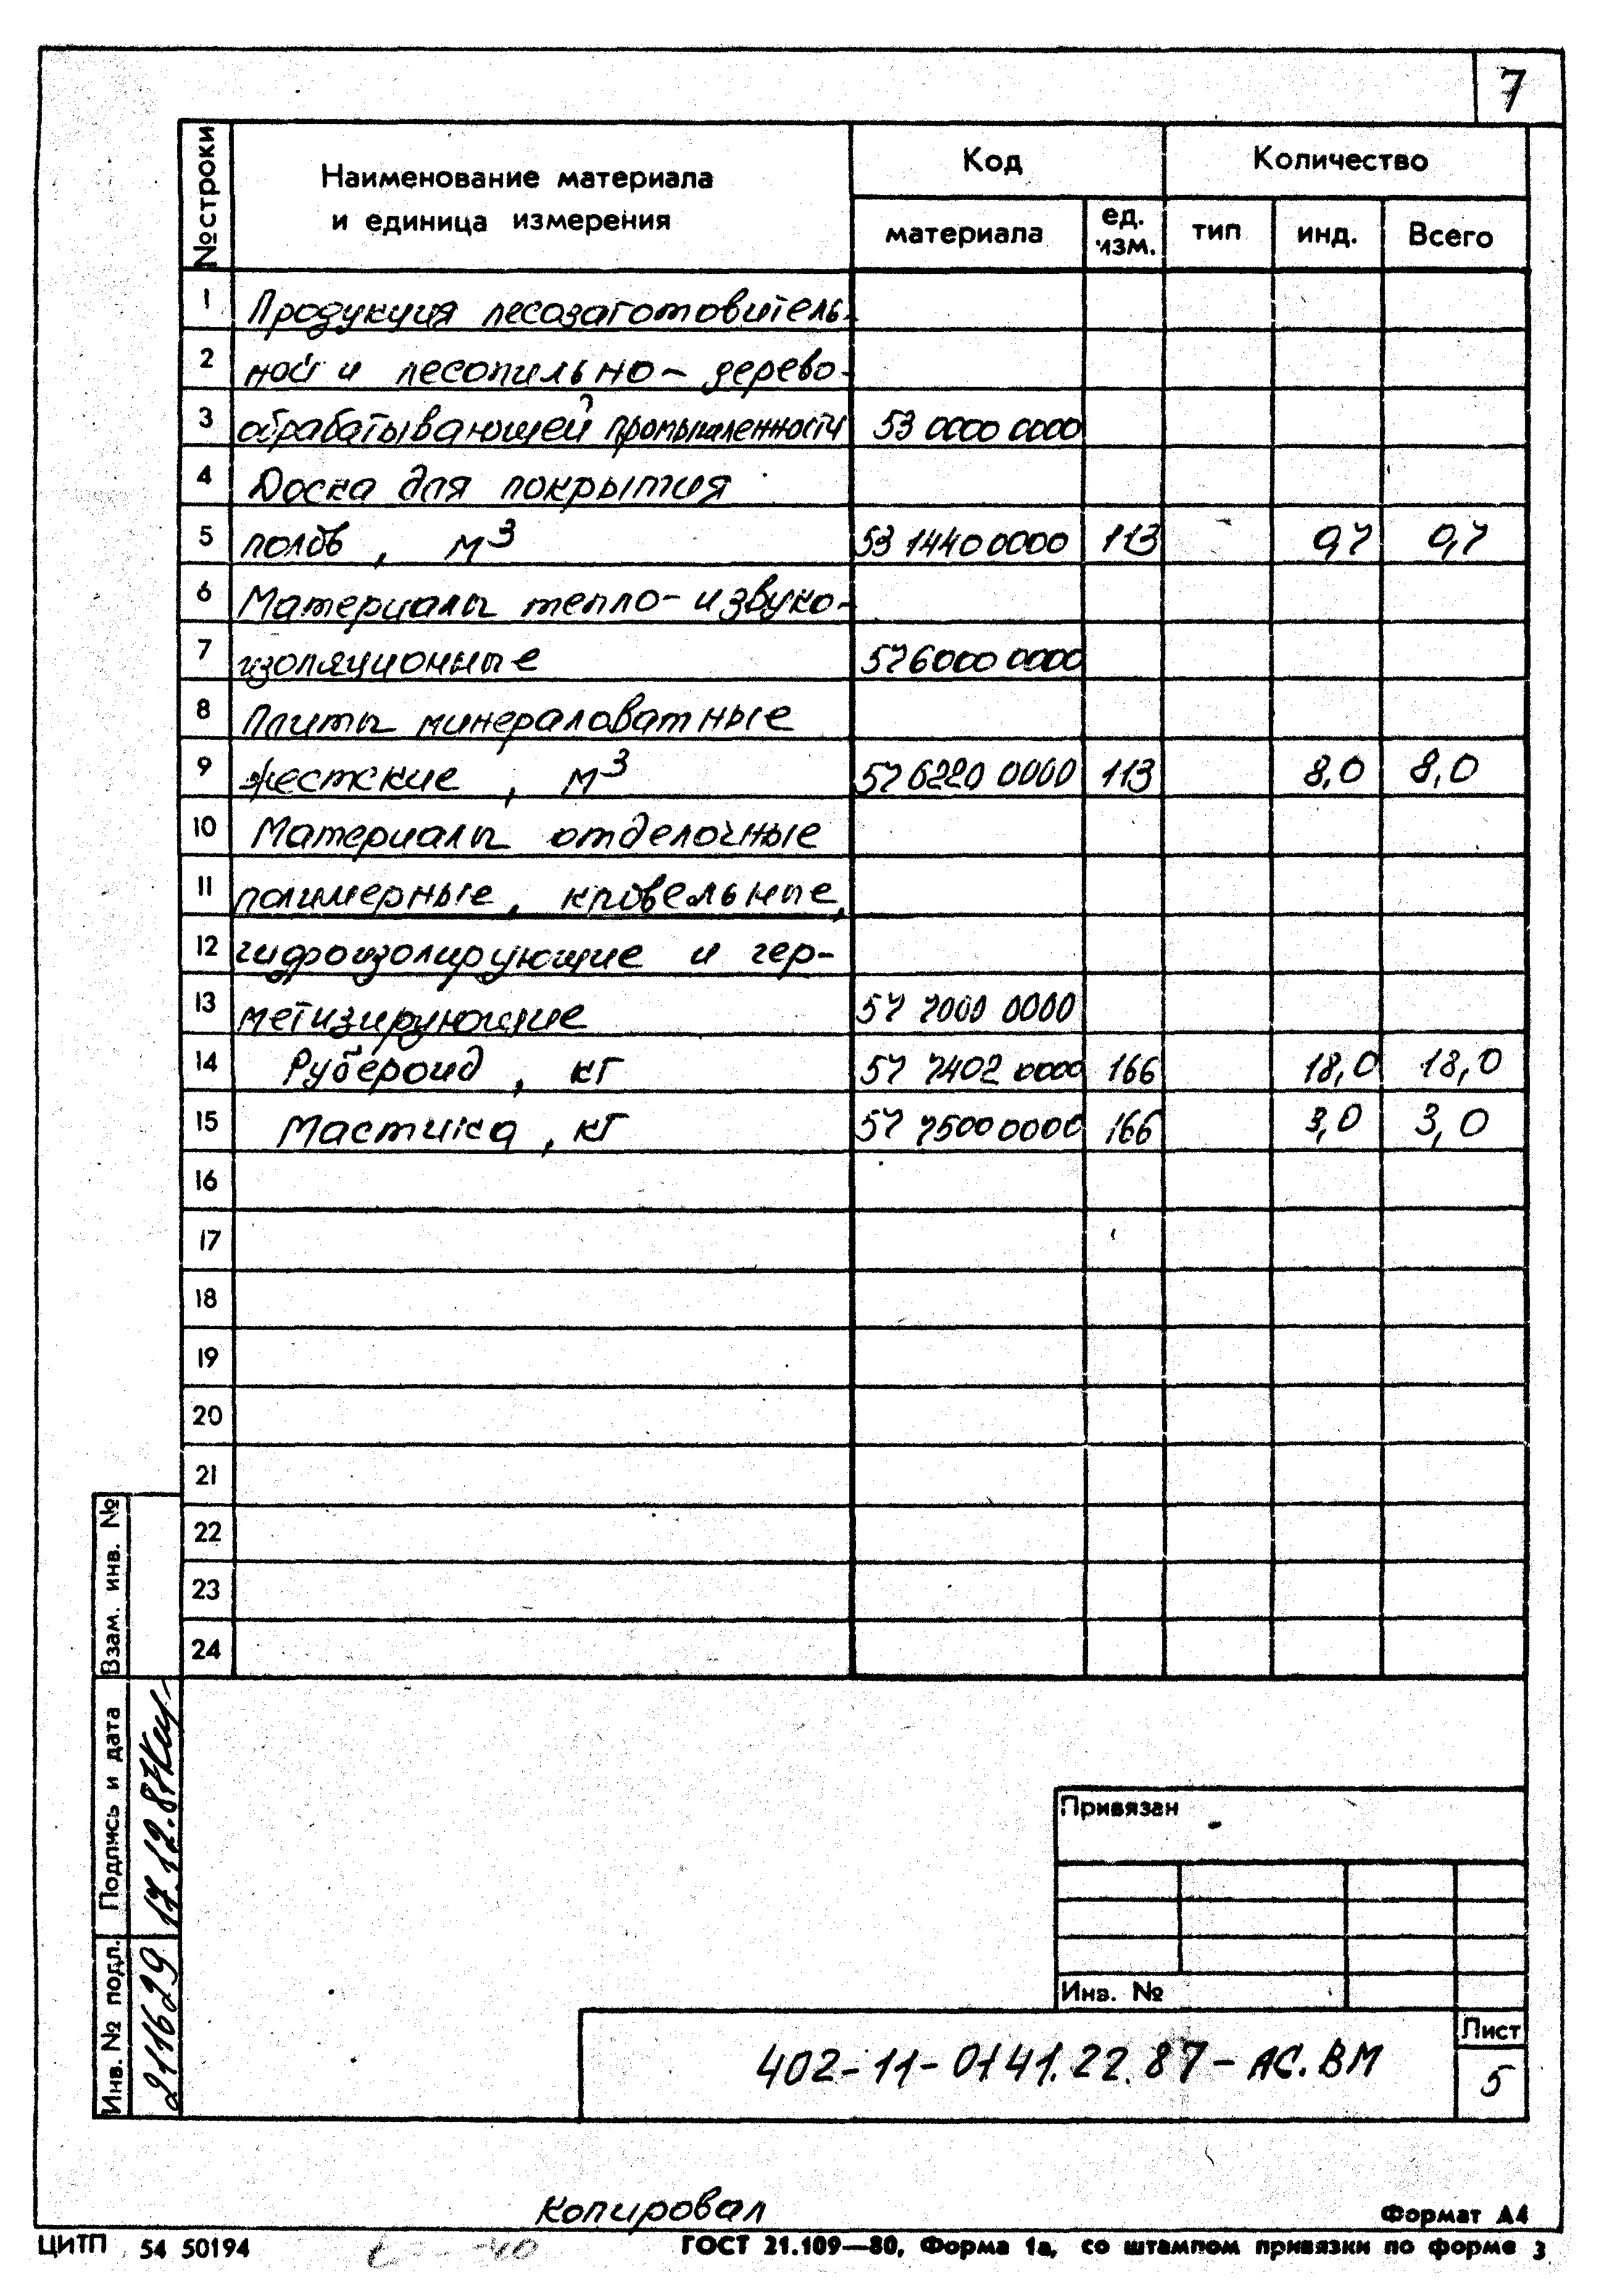 7
№ строки
Наименование материала
и единица измерения
Код
Количество
материала
ед. изм.
тип
инд.
Всего
1 Продукция лесозаготовитель-
2 ной и лесопильно-дерево-
3 обрабатывающей промышленности 53 0000 0000
4 Доска для покрытия
5 полов, м3 53 1440 0000 113 - 0,7 0,7
6 Материалы тепло- и звуко-
7 изоляционные 57 6000 0000
8 Плиты минераловатные
9 жесткие, м3 57 6220 0000 113 8,0 8,0
10 Материалы отделочные
11 полимерные, кровельные,
12 гидроизолирующие и гер-
13 метизирующие 57 7000 0000
14 Рубероид, кг 57 7402 0000 166 18,0 18,0
15 Мастика, кг 57 7500 0000 166 3,0 3,0
16
17
18
19
20
21
22
23
24
Взам. инв. №
Подпись и дата
17.12.87
Инв. № подл.
211629
Привязан
Инв. №
402-11-0141.22.87-АС.ВМ
Лист
5
Копировал
Формат А4
ЦИТП 54 50194
ГОСТ 21.109—80, Форма 1а, со штампом привязки по форме 3